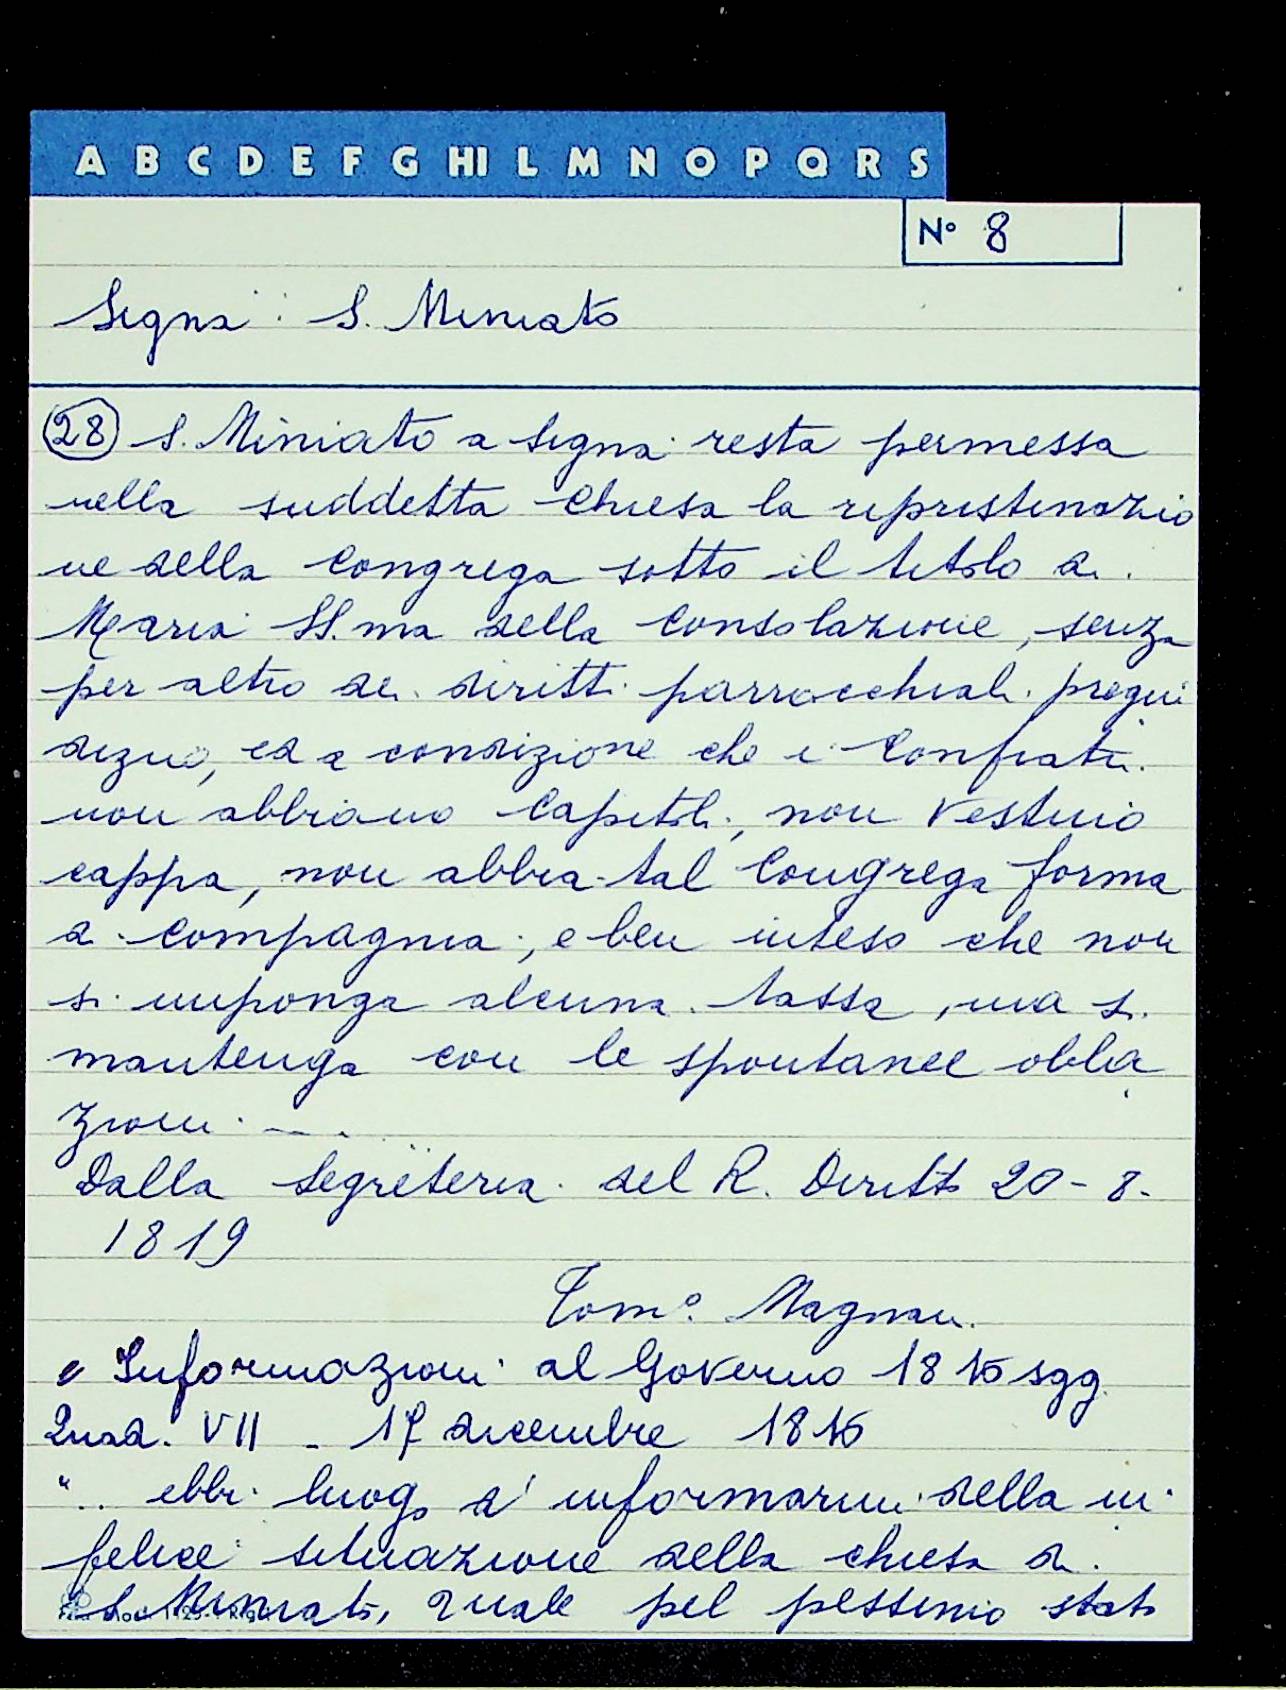 A B C D E F G HI L M N O P Q R S
N° 8
Segna: S. Miniato
(28) S. Miniato a Segna: resta permessa
nella suddetta Chiesa la ripristinazio
ne della Congrega sotto il titolo di
Maria SS.ma della Consolazione, senza
per altro dei diritti parrocchiali pregiu
dizio, ed a condizione che i Confrati
non abbiano Capitoli, non vestino
cappa, non abbia tal Congrega forma
di compagnia, e ben inteso che non
si imponga alcuna tassa, ma si
mantenga con le spontanee obbla
zioni ....
Dalla Segreteria del R. Diritto 20-8-
1819
Tom°. Magnani
Informazioni al Governo 1815 sgg.
Quad. VII - 17 dicembre 1816
".. ebbi luogo d'informarmi della in
felice situazione della chiesa di
S. Miniato, quale pel pessimo stato